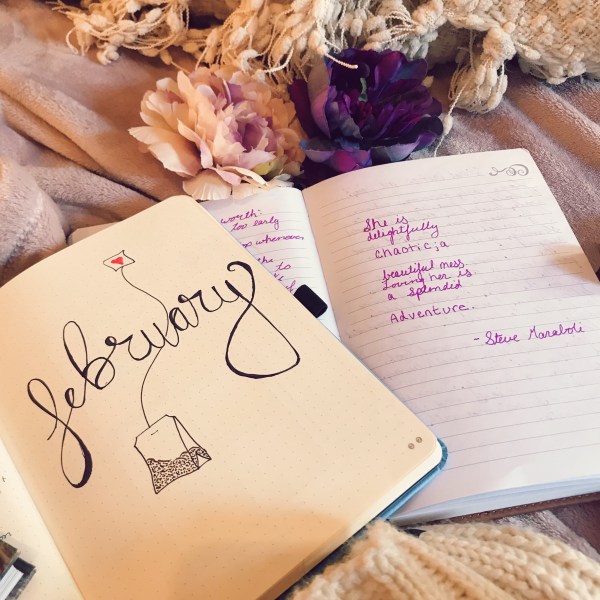 february
worth:
too early
whenever
the
to
She is
delightfully
chaotic; a
beautiful mess.
Loving her is
a splendid
Adventure.
- Steve Maraboli